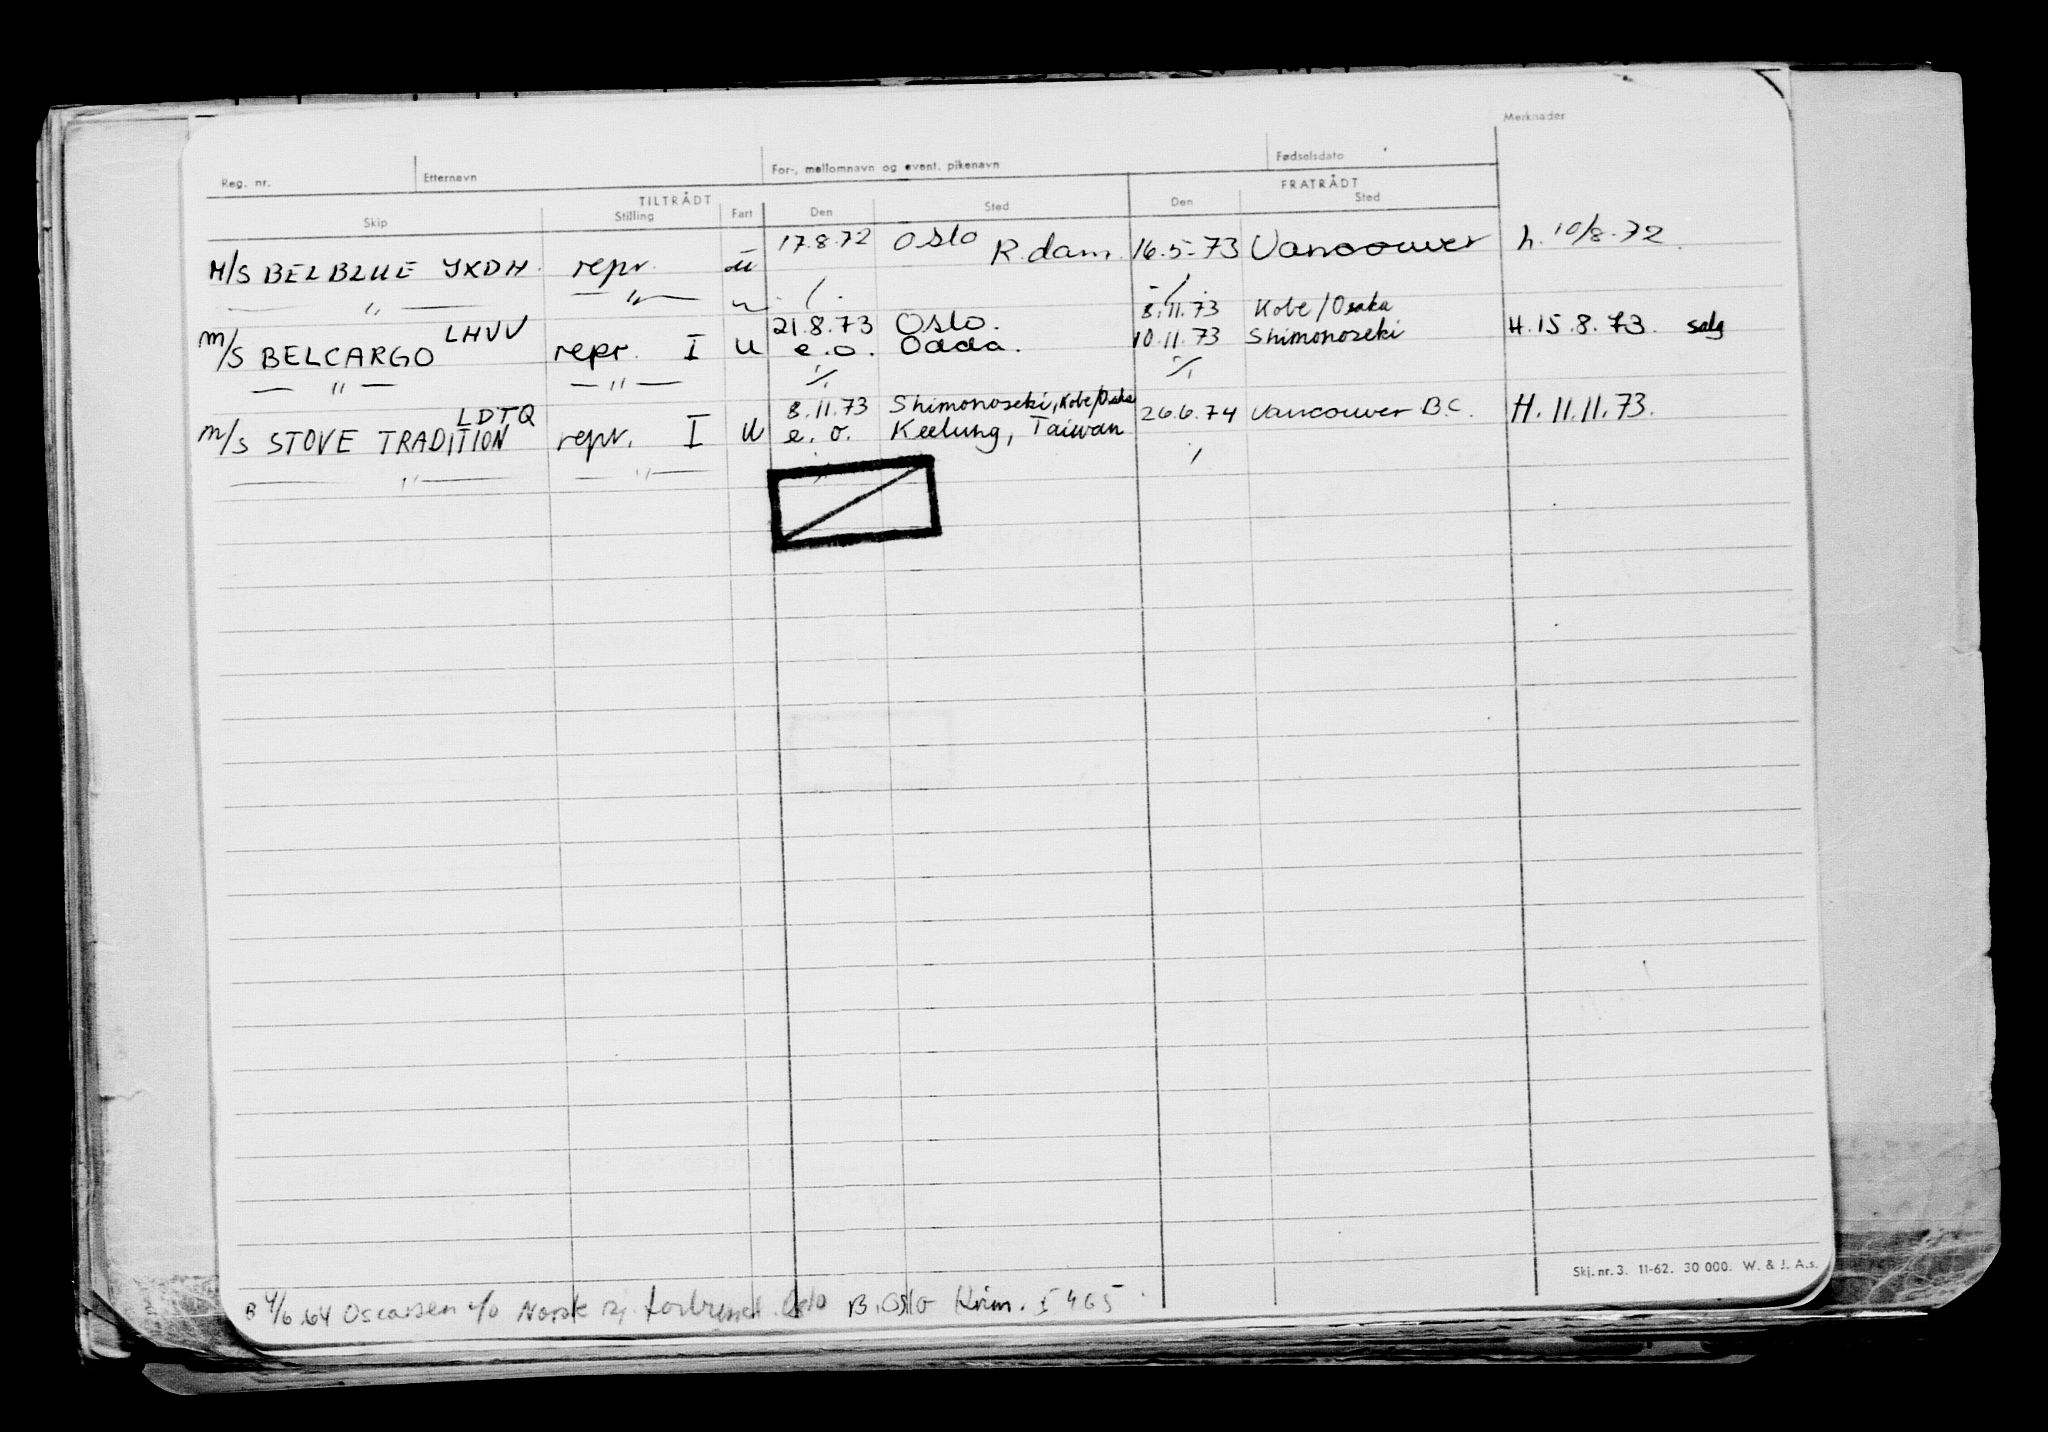 Merknader
Reg. nr. Etternavn For-, mellomnavn og event. pikenavn Fødselsdato
TILTRÅDT FRATRÅDT
Skip Stilling Fart Den Sted Den Sted
17.8.72 Oslo R.dam. 16.5-73 Vancouver h. 10/8-72.
M/S BELBLUE repr. u
— " — — " —
21.8.73 Oslo. 8.11.73 Kobe/Osaka
M/S BELCARGO LHVV repr. I U e.o. Odda. 10.11.73 Shimonoseki H. 15.8.73. salg
— " — — " —
8.11.73 Shimonoseki, Kobe/Osaka
M/S STOVE TRADITION LDTQ repr. I U e.o. Keelung, Taiwan 26.6.74 Vancouver B.C. H. 11.11.73.
— " — — " —
Skj. nr. 3. 11-62. 30 000. W. & J. A.s.
B 4/6 64 Oscarsen c/o Norsk Oslo B. Oslo Krim. I 465